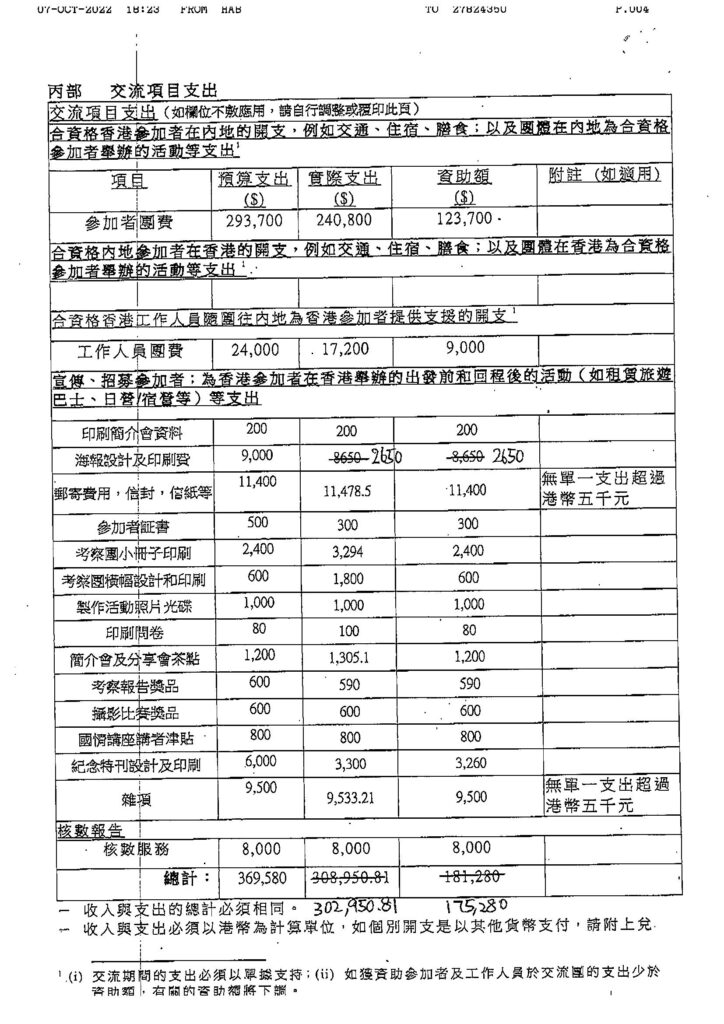 07-OCT-2022 18:23 FROM HAB TO 27824350 P.004
丙部 交流項目支出
交流項目支出 (如欄位不敷應用，請自行調整或覆印此頁)
合資格香港參加者在內地的開支，例如交通、住宿、膳食；以及團體在內地為合資格
參加者舉辦的活動等支出1
項目 預算支出 實際支出 資助額 附註 (如適用)
($) ($) ($)
參加者團費 293,700 240,800 123,700
合資格內地參加者在香港的開支，例如交通、住宿、膳食；以及團體在香港為合資格
參加者舉辦的活動等支出1
合資格香港工作人員隨團往內地為香港參加者提供支援的開支1
工作人員團費 24,000 17,200 9,000
宣傳、招募參加者；為香港參加者在香港舉辦的出發前和回程後的活動 (如租賃旅遊
巴士、日營/宿營等) 等支出
印刷簡介會資料 200 200 200
海報設計及印刷費 9,000 8650 2650 8,650 2650
郵寄費用，信封，信紙等 11,400 11,478.5 11,400 無單一支出超過
港幣五千元
參加者証書 500 300 300
考察團小冊子印刷 2,400 3,294 2,400
考察團橫幅設計和印刷 600 1,800 600
製作活動照片光碟 1,000 1,000 1,000
印刷問卷 80 100 80
簡介會及分享會茶點 1,200 1,305.1 1,200
考察報告獎品 600 590 590
攝影比賽獎品 600 600 600
國情講座講者津貼 800 800 800
紀念特刊設計及印刷 6,000 3,300 3,260
雜項 9,500 9,533.21 9,500 無單一支出超過
港幣五千元
核數報告
核數服務 8,000 8,000 8,000
總計： 369,580 308,950.81 181,280
一 收入與支出的總計必須相同。 302,950.81 175,280
一 收入與支出必須以港幣為計算單位，如個別開支是以其他貨幣支付，請附上兌
1 (i) 交流期間的支出必須以單據支持；(ii) 如獲資助參加者及工作人員於交流團的支出少於
資助額，有關的資助額將下調。